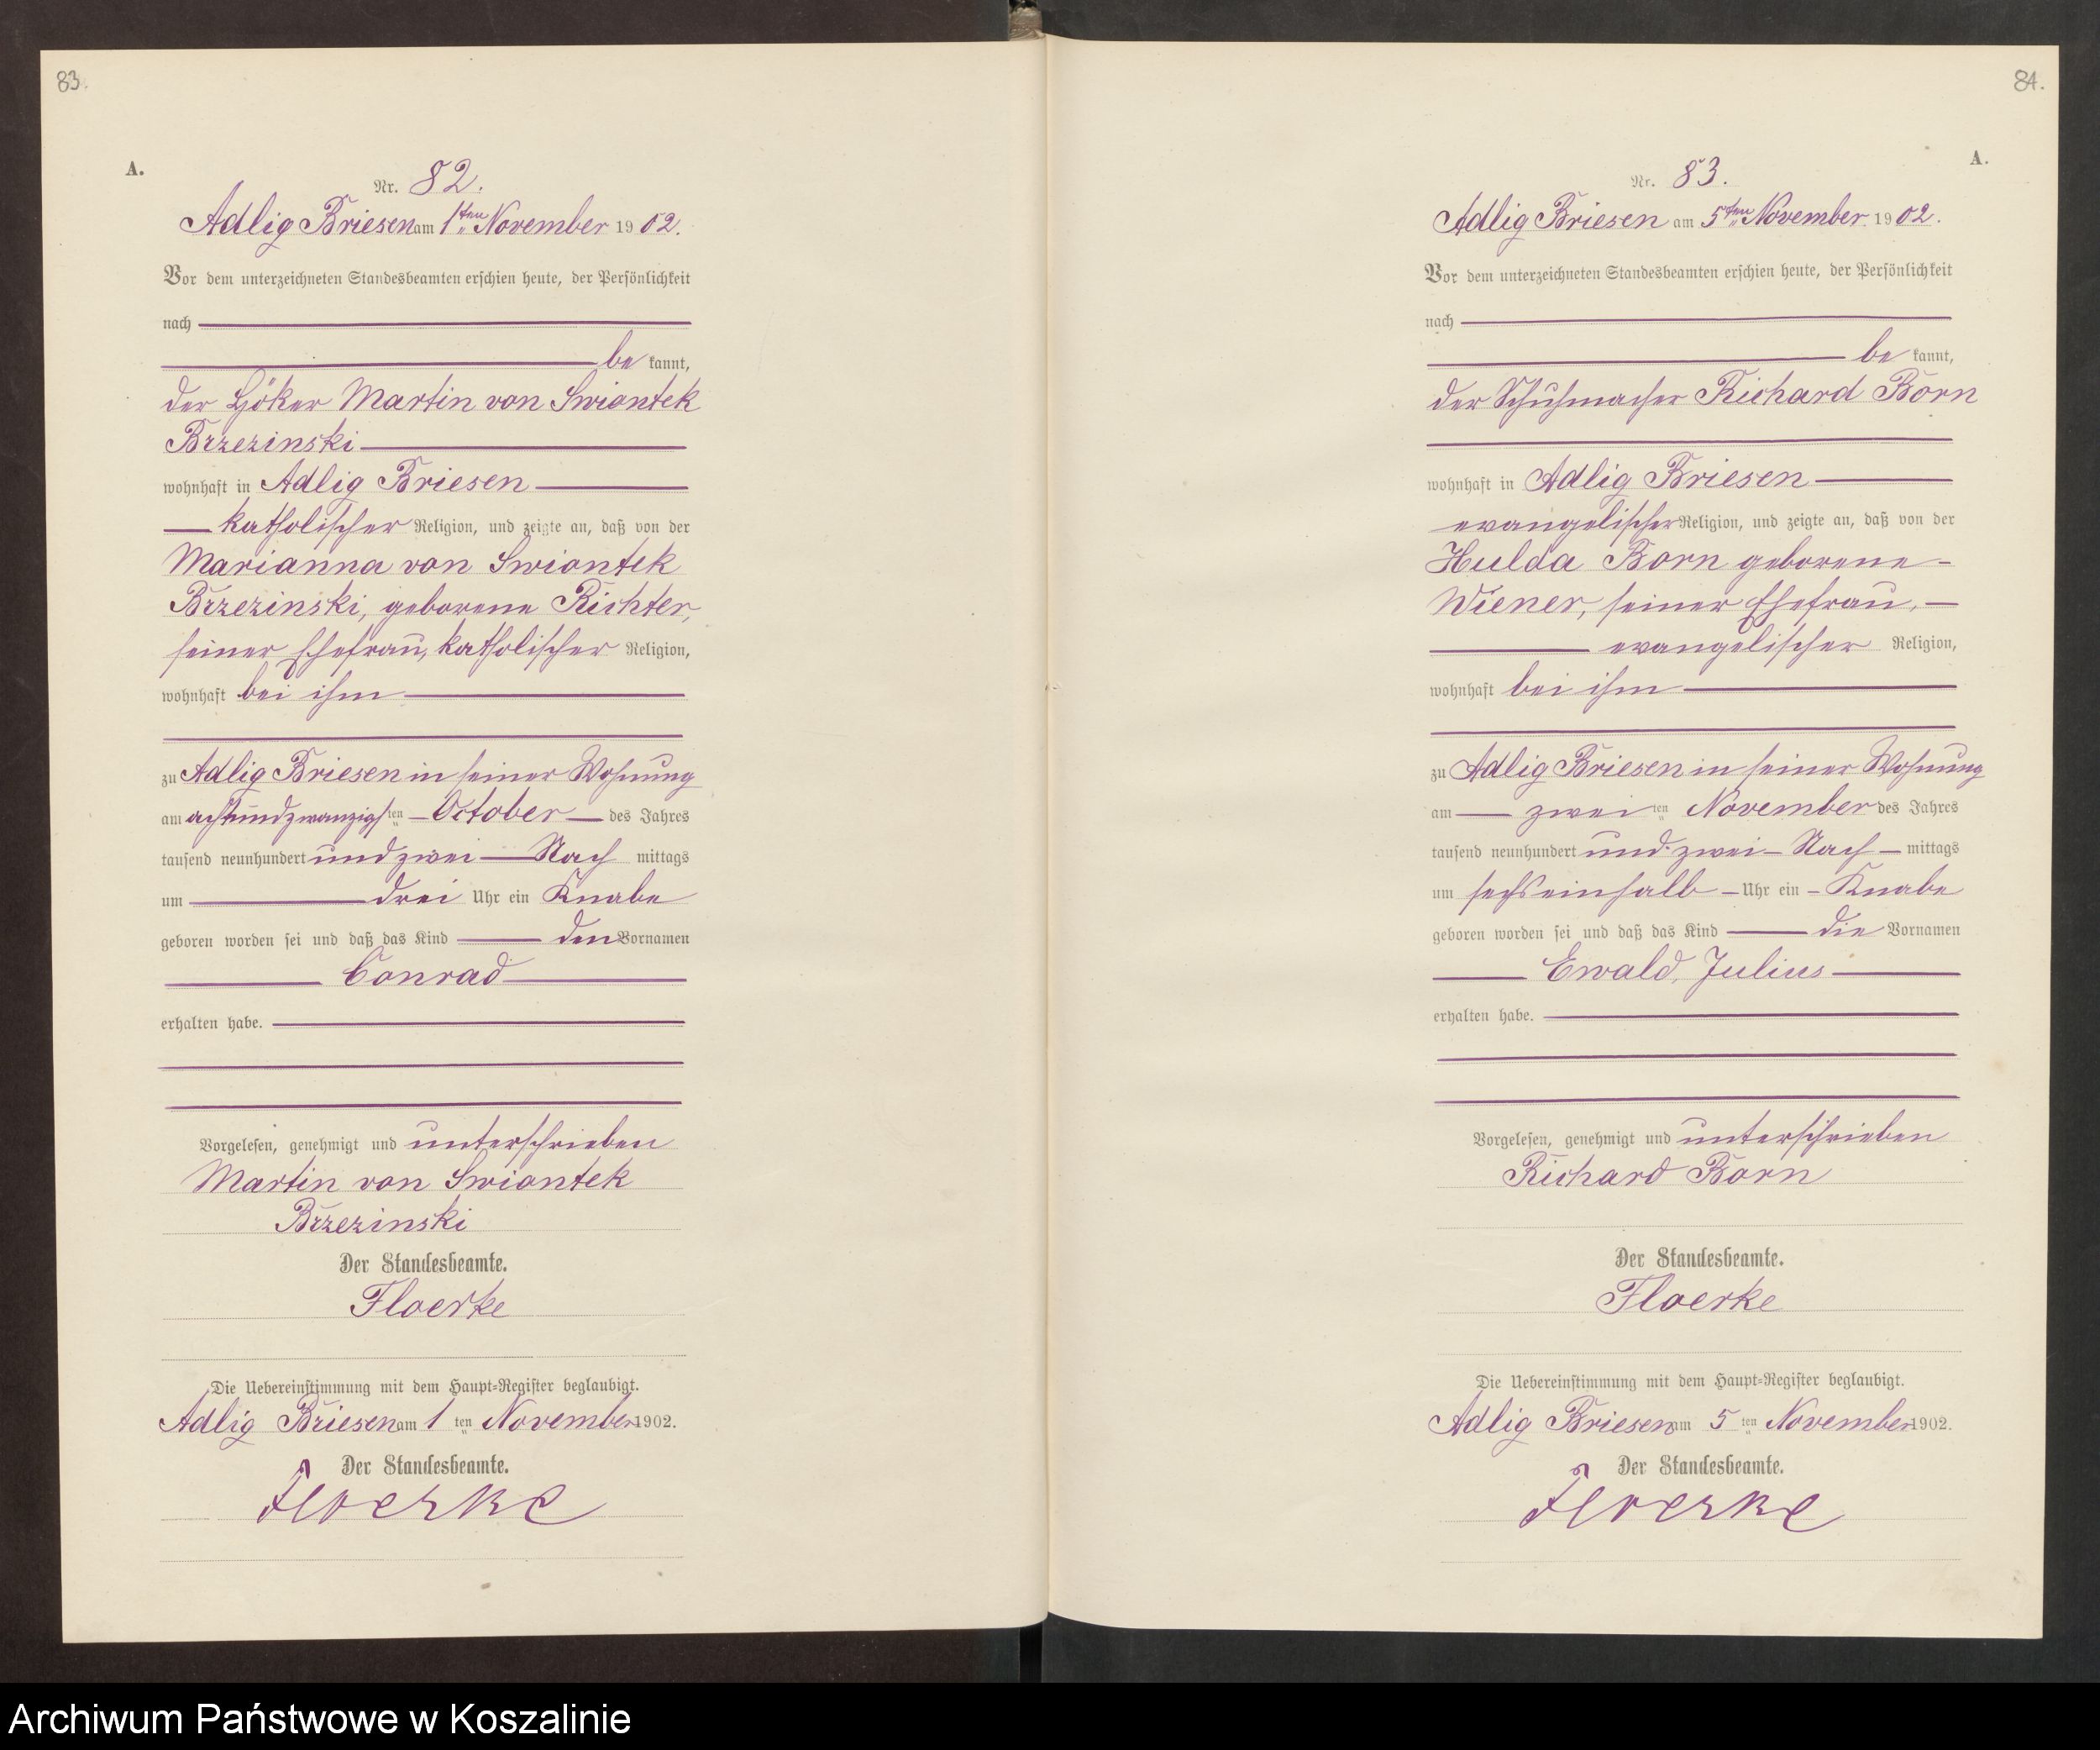 83.
A.
Nr. 82.
Adlig Briesen am 1ten November 1902.
Vor dem unterzeichneten Standesbeamten erschien heute, der Persönlichkeit
nach
be kannt,
der Höker Martin von Swiontek
Brzezinski
wohnhaft in Adlig Briesen
katholischer Religion, und zeigte an, daß von der
Marianna von Swiontek
Brzezinski, geborene Richter,
seiner Ehefrau, katholischer Religion,
wohnhaft bei ihm
zu Adlig Briesen in seiner Wohnung
am achtundzwanzigsten October des Jahres
tausend neunhundert und zwei Nach mittags
um drei Uhr ein Knabe
geboren worden sei und daß das Kind den Vornamen
Conrad
erhalten habe.
Vorgelesen, genehmigt und unterschrieben
Martin von Swiontek
Brzezinski
Der Standesbeamte.
Floerke
Die Uebereinstimmung mit dem Haupt-Register beglaubigt.
Adlig Briesen am 1 ten November 1902.
Der Standesbeamte.
Floerke
84.
A.
Nr. 83.
Adlig Briesen am 5ten November 1902.
Vor dem unterzeichneten Standesbeamten erschien heute, der Persönlichkeit
nach
be kannt,
der Schuhmacher Richard Born
wohnhaft in Adlig Briesen
evangelischer Religion, und zeigte an, daß von der
Hulda Born geborene
Wiener, seiner Ehefrau,
evangelischer Religion,
wohnhaft bei ihm
zu Adlig Briesen in seiner Wohnung
am zwei ten November des Jahres
tausend neunhundert und zwei Nach mittags
um sechseinhalb Uhr ein Knabe
geboren worden sei und daß das Kind die Vornamen
Ewald, Julius
erhalten habe.
Vorgelesen, genehmigt und unterschrieben
Richard Born
Der Standesbeamte.
Floerke
Die Uebereinstimmung mit dem Haupt-Register beglaubigt.
Adlig Briesen am 5 ten November 1902.
Der Standesbeamte.
Floerke
Archiwum Państwowe w Koszalinie